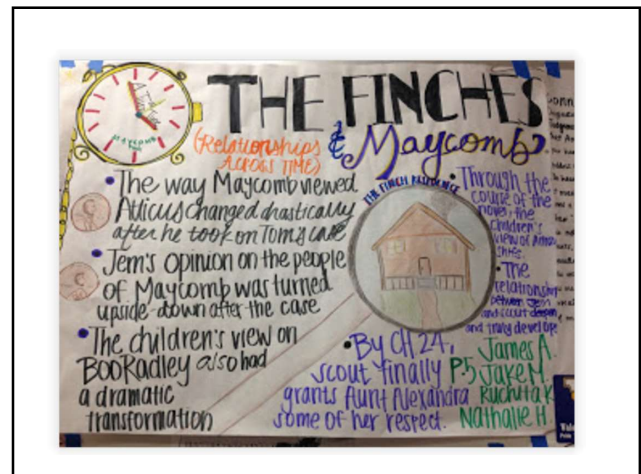 THE FINCHES
& Maycomb
(Relationships
ACROSS TIME)
ATTICUS
MAYCOMB
• The way Maycomb viewed
Atticus changed drastically
after he took on Tom's case
• Jem's opinion on the people
of Maycomb was turned
upside-down after the case
• The children's view on
Boo Radley also had
a dramatic
transformation
THE FINCH RESIDENCE
• Through the
course of the
novel, the
children's
view of
• The
relationship
between Jem
and scout deepen
and truly develop
• By CH 24,
scout finally
grants Aunt Alexandra
some of her respect.
James A.
P.5 Jake M.
Ruchita K
Nathalie H.